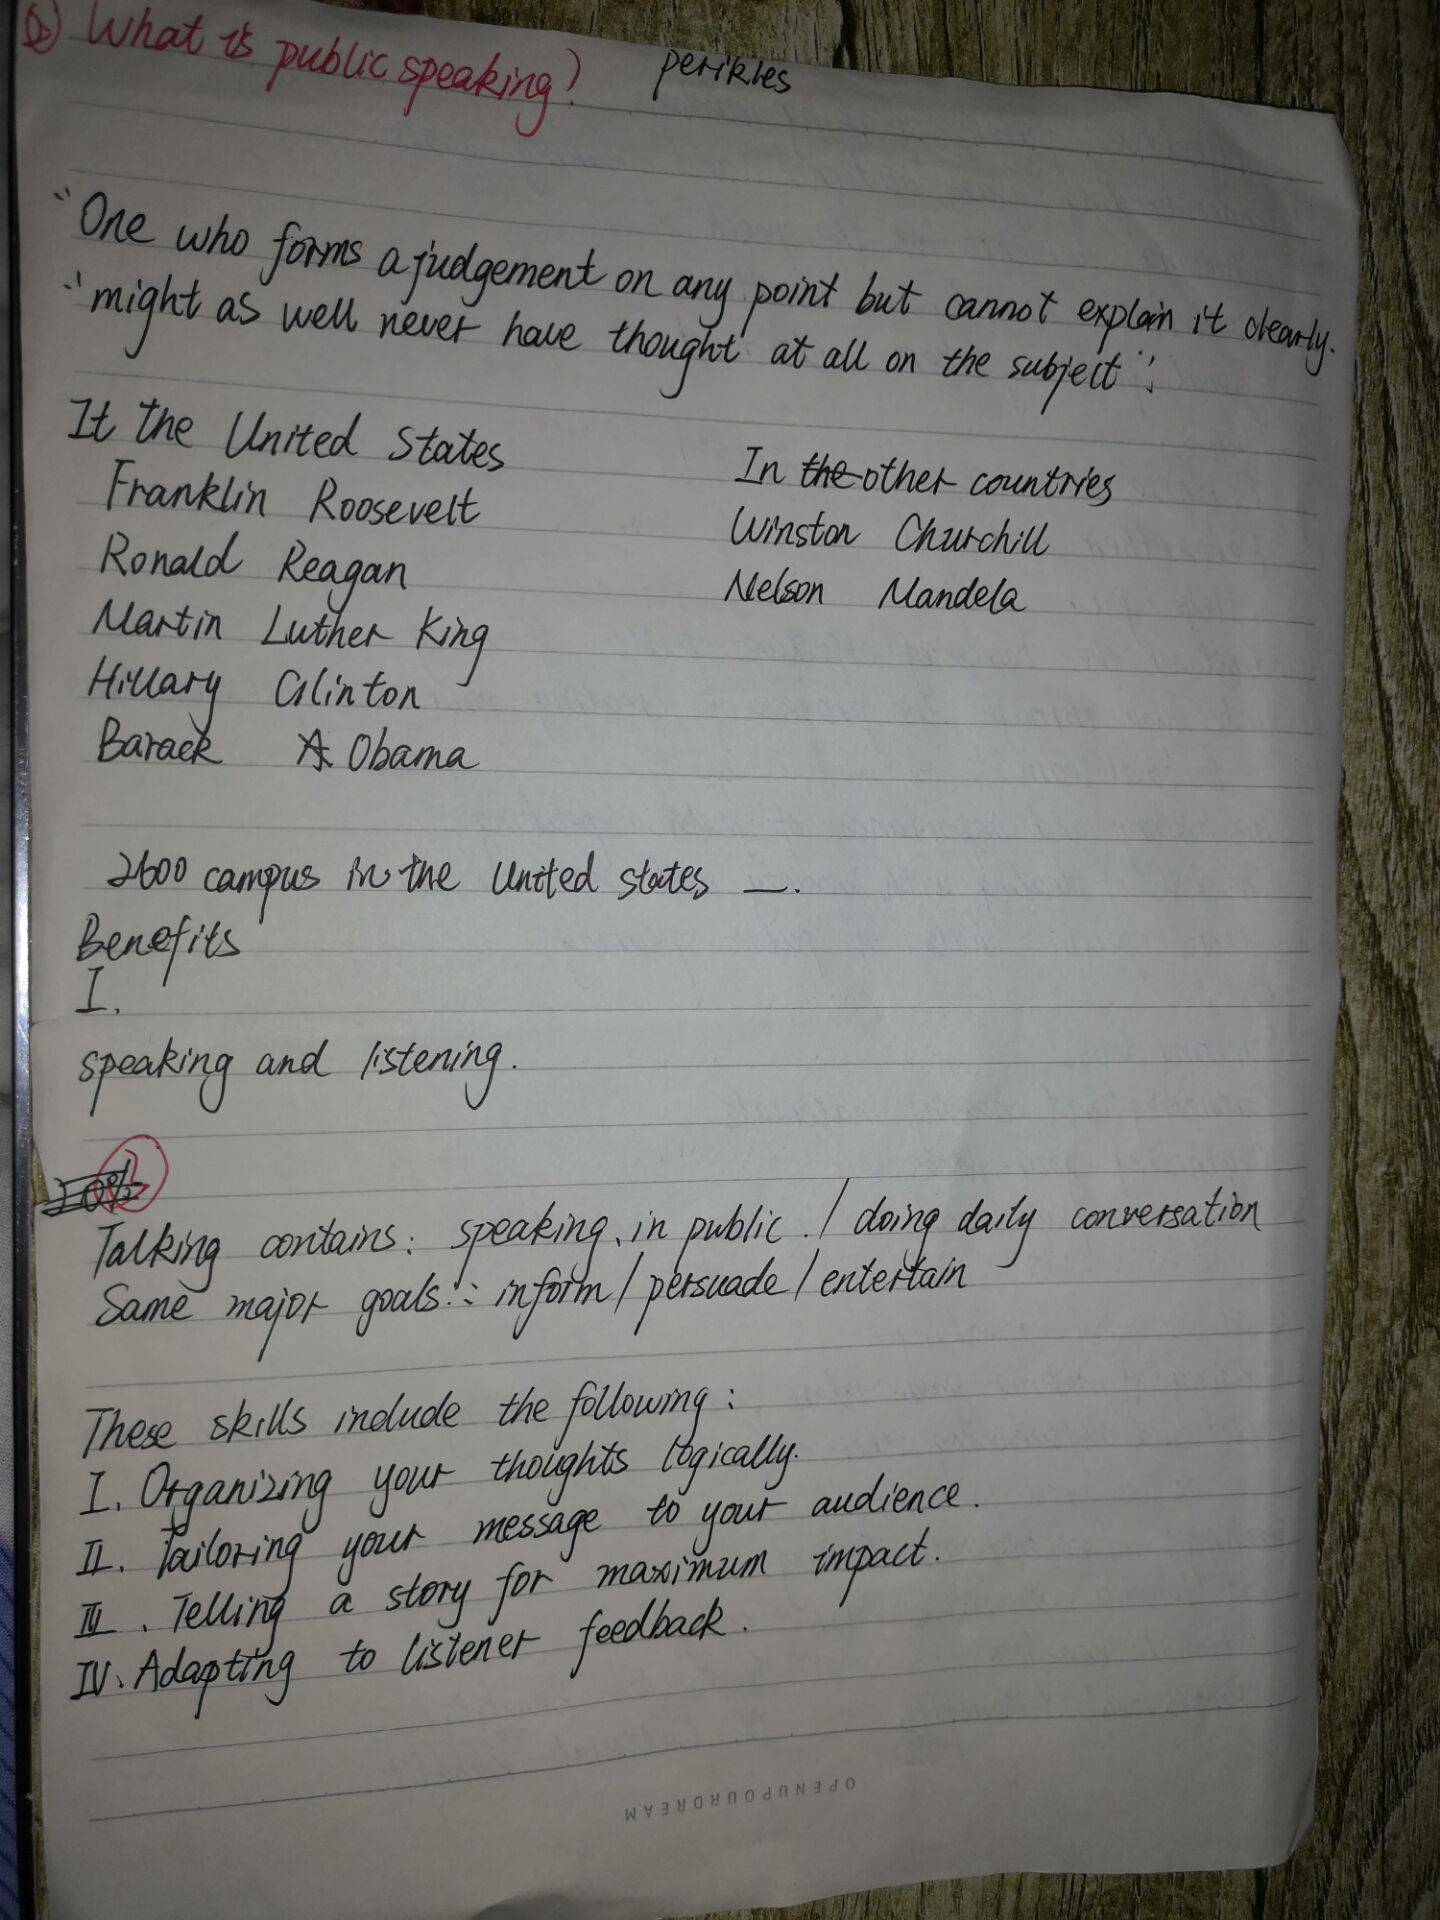 What is public speaking?
perikles
"One who forms a judgement on any point but cannot explain it clearly.
"might as well never have thought at all on the subject".
It the United States
Franklin Roosevelt
Ronald Reagan
Martin Luther King
Hillary Clinton
Barack Obama
In the other countries
Winston Churchill
Nelson Mandela
2600 campus in the United states —.
Benefits
I.
speaking and listening.
Talking contains: speaking in public. / doing daily conversation
Same major goals: inform / persuade / entertain
These skills include the following:
I. Organizing your thoughts logically.
II. Tailoring your message to your audience.
III. Telling a story for maximum impact.
IV. Adapting to listener feedback.
OPENUPOURDREAM